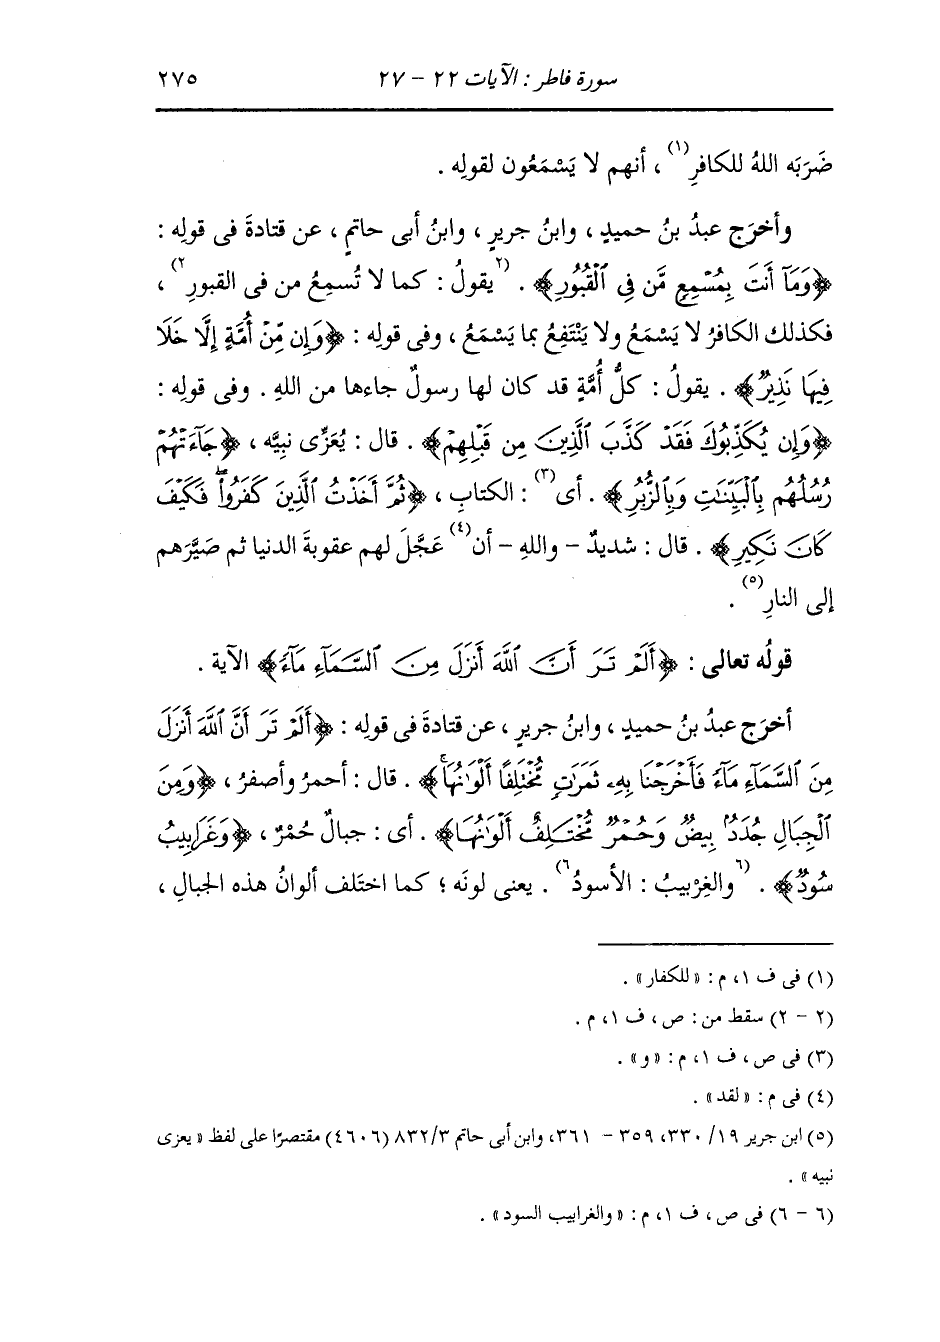 سورة فاطر : الآيات ٢٢ - ٢٧ ٢٧٥
ضَرَبَه اللهُ للكافرِ(١) ، أنهم لا يَسْمَعُون لقولِه .
وأخرَج عبدُ بنُ حميدٍ ، وابنُ جريرٍ ، وابنُ أبى حاتمٍ ، عن قتادةَ فى قولِه :
﴿وَمَآ أَنتَ بِمُسْمِعٍ مَّن فِى ٱلْقُبُورِ﴾ . (٢يقولُ : كما لا تُسمِعُ من فى القبورِ٢) ،
فكذلك الكافرُ لا يَسْمَعُ ولا يَنْتَفِعُ بما يَسْمَعُ ، وفى قولِه : ﴿وَإِن مِّنْ أُمَّةٍ إِلَّا خَلَا
فِيهَا نَذِيرٌ﴾ . يقولُ : كلُّ أُمَّةٍ قد كان لها رسولٌ جاءها من اللهِ . وفى قولِه :
﴿وَإِن يُكَذِّبُوكَ فَقَدْ كَذَّبَ ٱلَّذِينَ مِن قَبْلِهِمْ﴾ . قال : يُعَزِّى نبيَّه ، ﴿جَآءَتْهُمْ
رُسُلُهُم بِٱلْبَيِّنَٰتِ وَبِٱلزُّبُرِ﴾ . أى(٣) : الكتابِ ، ﴿ثُمَّ أَخَذْتُ ٱلَّذِينَ كَفَرُوا۟ ۖ فَكَيْفَ
كَانَ نَكِيرِ﴾ . قال : شديدٌ - واللهِ - أن(٤) عَجَّلَ لهم عقوبةَ الدنيا ثم صَيَّرَهم
إلى النارِ(٥) .
قولُه تعالى : ﴿أَلَمْ تَرَ أَنَّ ٱللَّهَ أَنزَلَ مِنَ ٱلسَّمَآءِ مَآءً﴾ الآية .
أخرَج عبدُ بنُ حميدٍ ، وابنُ جريرٍ ، عن قتادةَ فى قولِه : ﴿أَلَمْ تَرَ أَنَّ ٱللَّهَ أَنزَلَ
مِنَ ٱلسَّمَآءِ مَآءً فَأَخْرَجْنَا بِهِۦ ثَمَرَٰتٍ مُّخْتَلِفًا أَلْوَٰنُهَا ۚ﴾ . قال : أحمرُ وأصفرُ ، ﴿وَمِنَ
ٱلْجِبَالِ جُدَدٌۢ بِيضٌ وَحُمْرٌ مُّخْتَلِفٌ أَلْوَٰنُهَا﴾ . أى : جبالٌ حُمْرٌ ، ﴿وَغَرَابِيبُ
سُودٌ﴾ . (٦والغِرْبيبُ : الأسودُ٦) . يعنى لونَه ؛ كما اختَلف ألوانُ هذه الجبالِ ،
(١) فى ف ١، م : «للكفار» .
(٢ - ٢) سقط من : ص ، ف ١، م .
(٣) فى ص ، ف ١، م : «و» .
(٤) فى م : «لقد» .
(٥) ابن جرير ١٩/ ٣٣٠، ٣٥٩ - ٣٦١، وابن أبى حاتم ٨٣٢/٣ (٤٦٠٦) مقتصرًا على لفظ «يعزى
نبيه» .
(٦ - ٦) فى ص ، ف ١، م : «والغرابيب السود» .